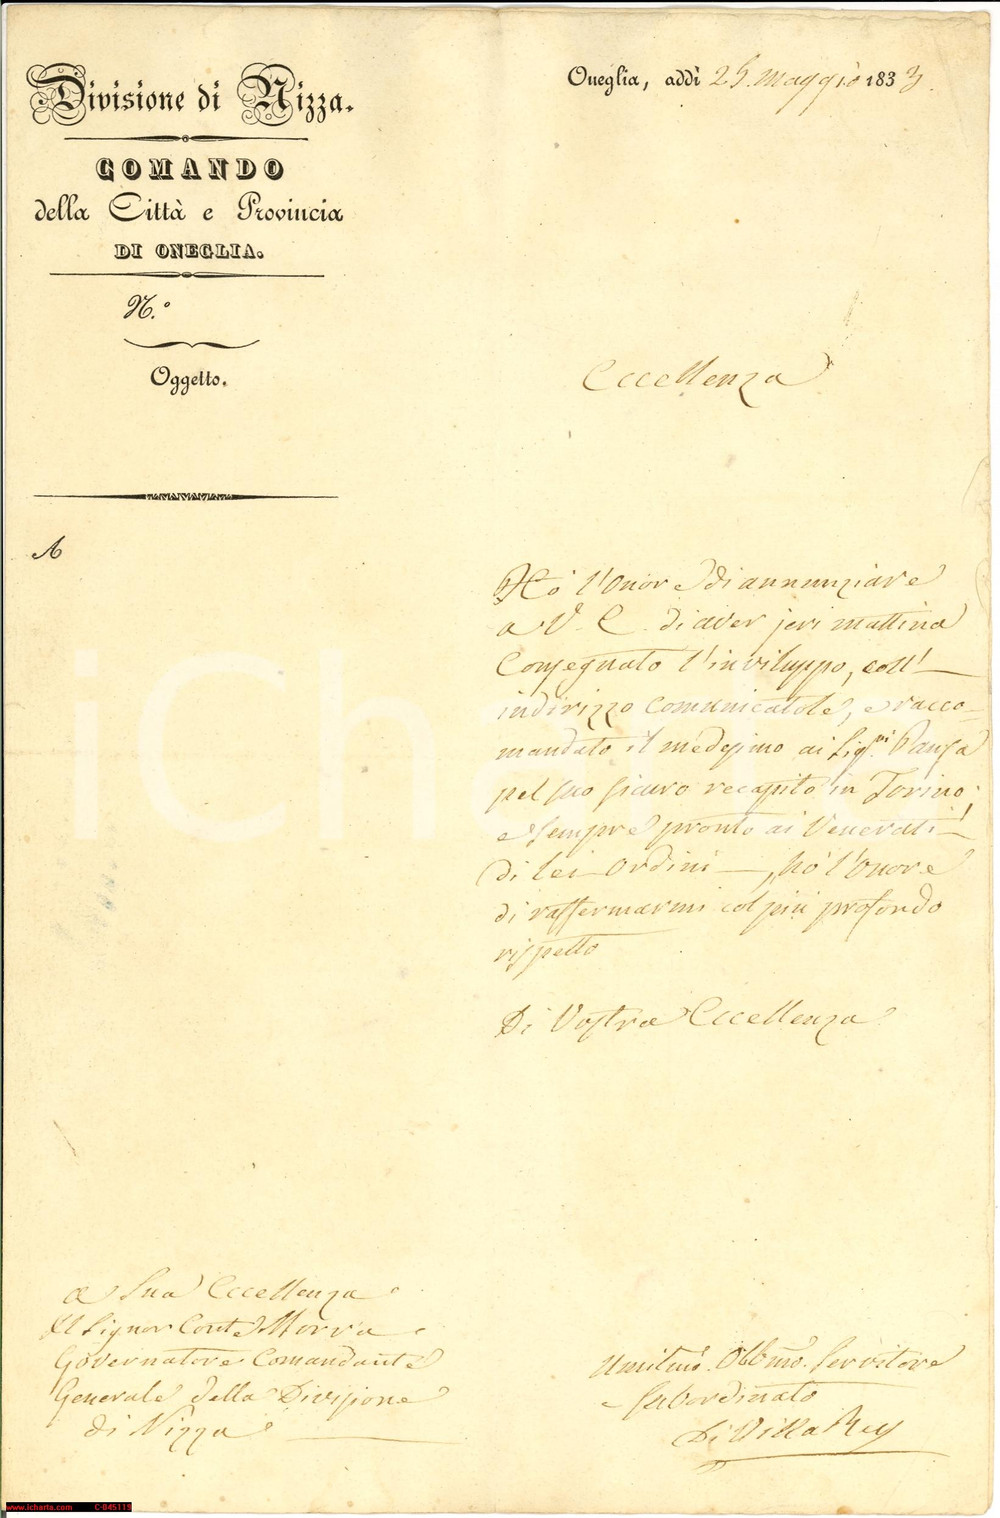 Divisione di Nizza.
COMANDO
della Città e Provincia
DI ONEGLIA.
N.°
Oggetto.
A
Oneglia, addì 25. Maggio 1833.
Eccellenza
Hò l'Onore di annunziare
a V. E. di aver jeri mattina
Consegnato l'inviluppo, coll'
indirizzo Comunicatole, e racco-
mandato il medesimo ai Sig.ri Pansa
pel suo sicuro recapito in Torino;
e sempre pronto ai Venerati
di lei Ordini, hò l'onore
di raffermarmi col più profondo
rispetto
Di Vostra Eccellenza
a Sua Eccellenza
Il Signor Conte Morra
Governatore Comandante
Generale della Divisione
di Nizza
Umilmo. Obbmo. Servitore
Subordinato
Di Villa Rey
iCharta
www.icharta.com C-045119